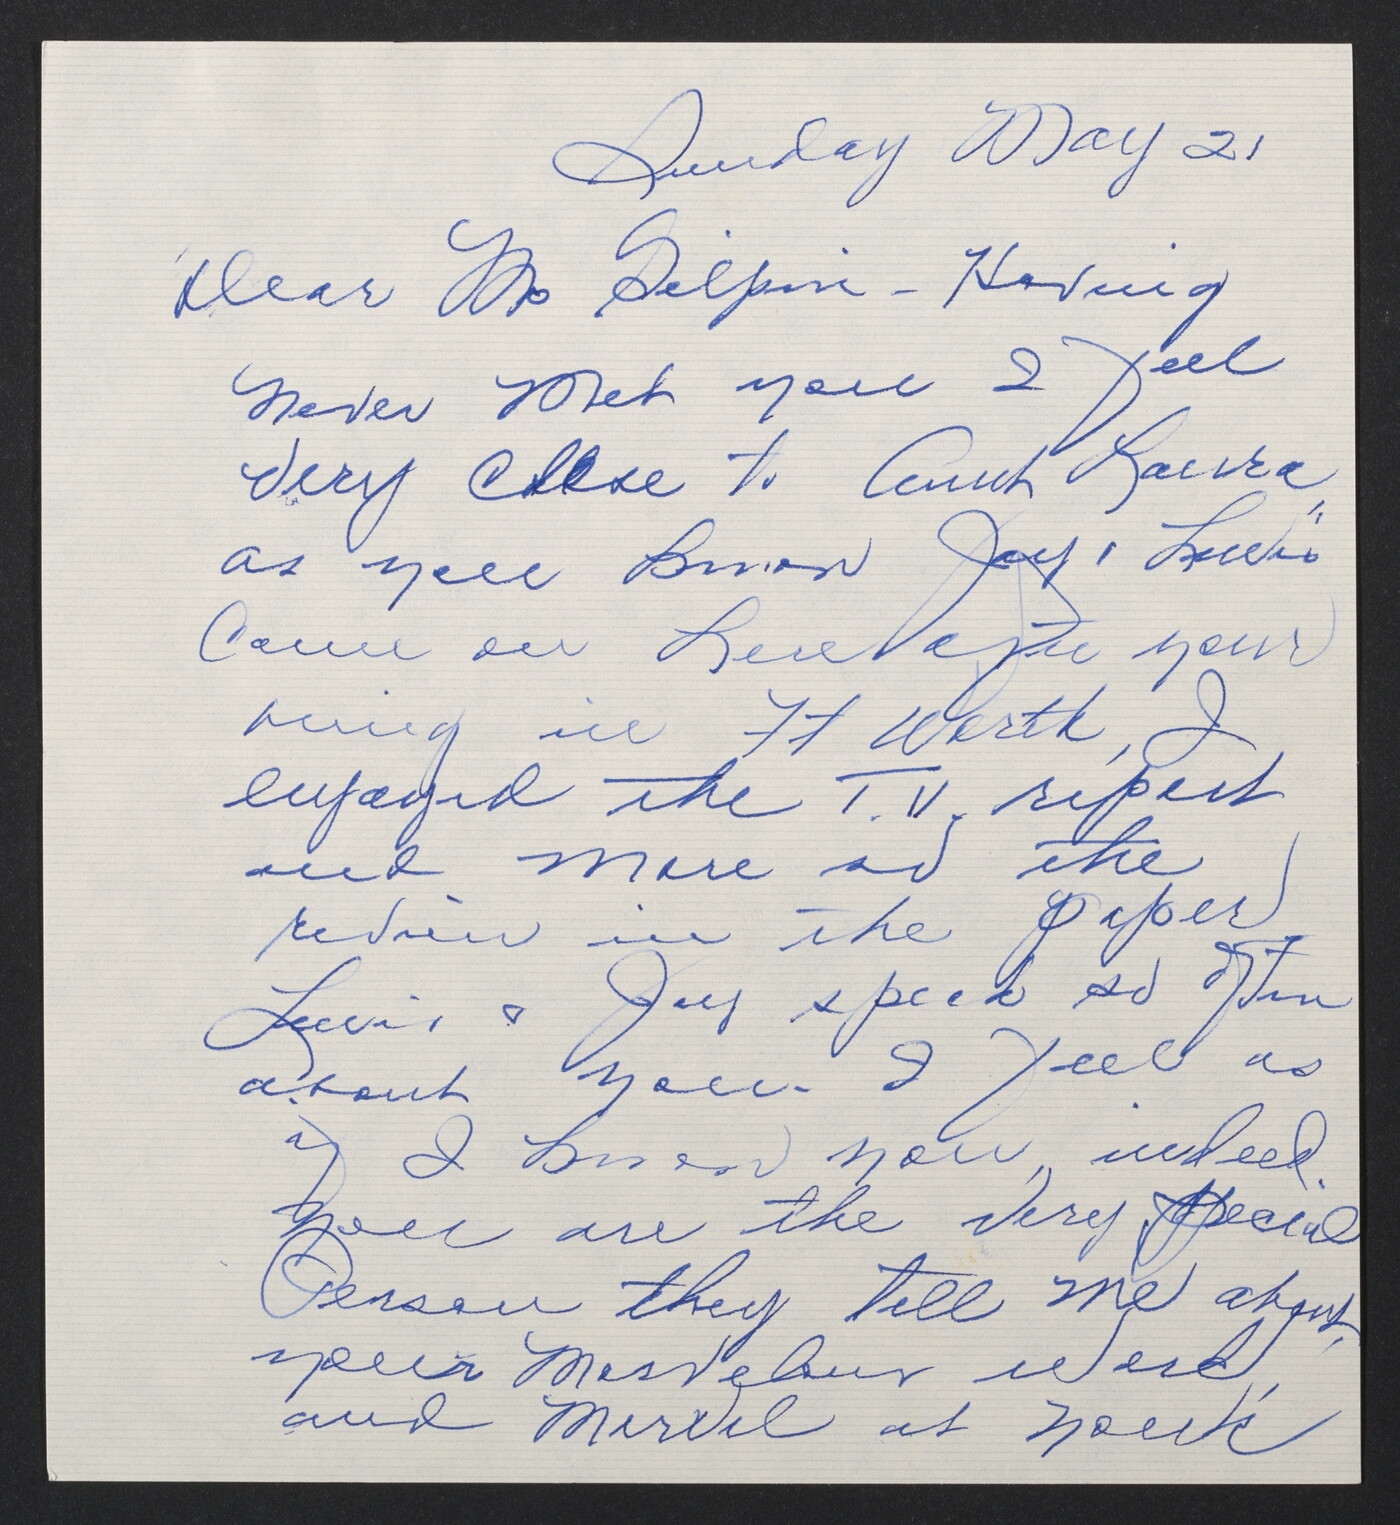 Sunday May 21
Dear Ms Gilpin - Having
never met you I feel
very close to "Aunt Laura"
as you know Joy, Lewis
came on here after your
in Ft Worth, I
enjoyed the T.V. report
and more so the
review in the paper
Lewis & Joy speak so often
about you. I feel as
if I know you, indeed.
you are the very special
Person they tell me about,
your marvelous work,
and marvel at your